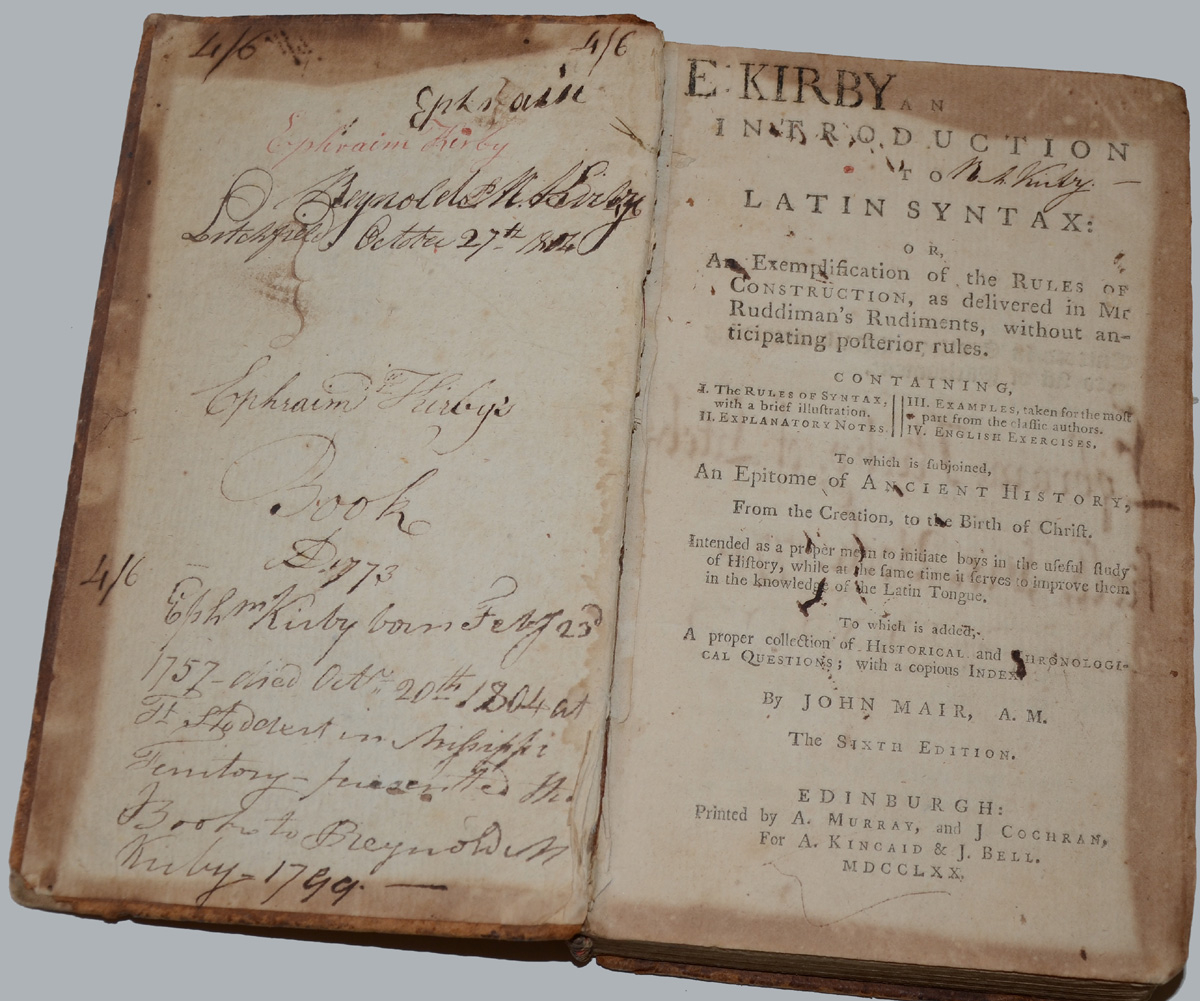 4/6
4/6
Ephraim
Ephraim Kirby
Reynold M Kirby
Litchfield October 27th 1804
Ephraim Kirby's
Book
AD 1773
4/6
Ephm Kirby born Feby 23d
1757 - died Octr 20th 1804 at
Ft Stoddert in Missippi
Territory - presented this
Book to Reynold M
Kirby - 1799. —
E KIRBY
AN
INTRODUCTION
TO
R M Kirby. —
LATIN SYNTAX:
OR,
An Exemplification of the RULES OF
CONSTRUCTION, as delivered in Mr
Ruddiman's Rudiments, without an-
ticipating poſterior rules.
CONTAINING,
I. The RULES OF SYNTAX,
with a brief illuſtration.
II. EXPLANATORY NOTES.
III. EXAMPLES, taken for the moſt
part from the claſſic authors.
IV. ENGLISH EXERCISES.
To which is ſubjoined,
An Epitome of ANCIENT HISTORY,
From the Creation, to the Birth of Chriſt.
Intended as a proper mean to initiate boys in the uſeful ſtudy
of Hiſtory, while at the ſame time it ſerves to improve them
in the knowledge of the Latin Tongue.
To which is added,
A proper collection of HISTORICAL and CHRONOLOGI-
CAL QUESTIONS; with a copious INDEX.
By JOHN MAIR, A. M.
The SIXTH EDITION.
EDINBURGH:
Printed by A. MURRAY, and J COCHRAN,
For A. KINCAID & J. BELL.
MDCCLXX.